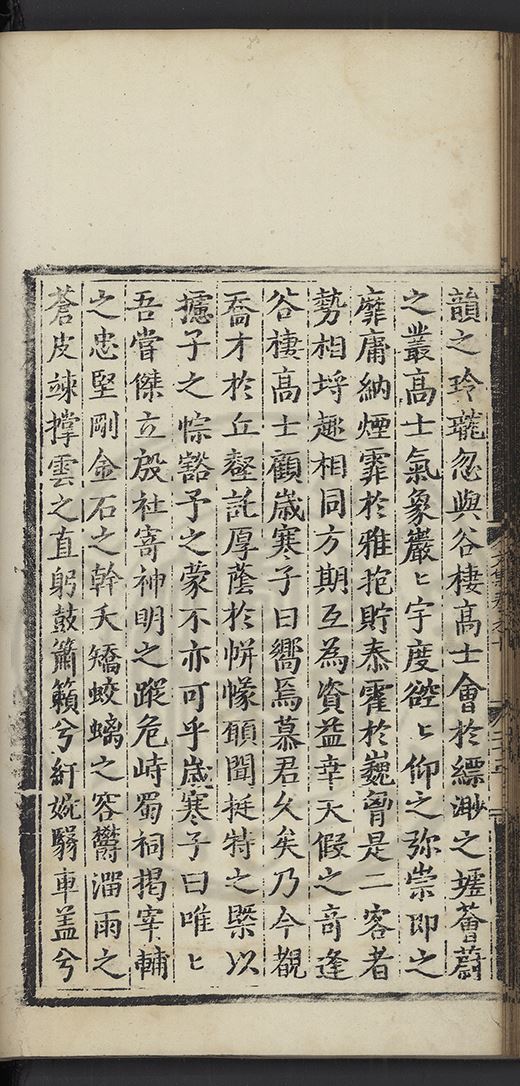 韻之玲瓏忽與谷棲髙士會於縹渺之墟薈蔚
之叢髙士氣象巖〻宇度谾〻仰之弥崇即之
靡庸納煙霏於雅抱貯泰霍於巍胷是二客者
勢相埒趣相同方期互為資益幸天假之竒逢
谷棲髙士顧歳寒子曰嚮焉慕君久矣乃今觀
喬才於丘壑託厚蔭於帡幪願聞挺特之槩以
攄子之悰豁予之蒙不亦可乎歳寒子曰唯〻
吾嘗傑立殷社寄神明之蹤危峙蜀祠揭宰輔
之忠堅剛金石之幹夭矯蛟螭之容欝溜雨之
蒼皮竦撑雲之直躬鼓簫籟兮䚮婉驂車盖兮